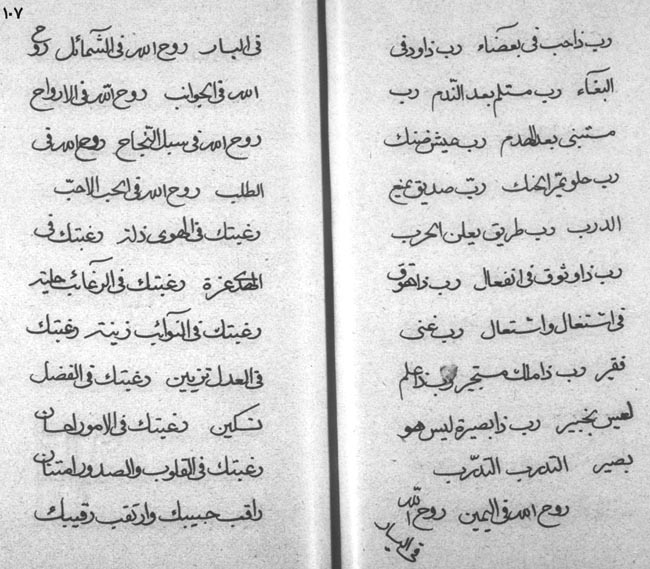 رب ذا حب فی بغضاء رب ذا ود فی
البغضاء رب مستلم بعد الندم رب
مستبنی بعد الهدم رب عیش ضنك
رب حلو تمر الحنك رب صدیق یمنع
الدرب رب طریق یعلن الحرب
رب ذا وثوق فی انفعال رب ذا تفوق
فی اشتغال واشتعال رب غنی
فقیر رب ذا ملك مستجیر رب ذا علم
لیس بخبیر رب ذا بصیرة لیس هو
بصیر التدرب التدرب
روح الله فی الیمین روح الله
فی الیسار
١٠٧
فی الیسار روح الله فی الشمائل روح
الله فی الجوانب روح الله فی الارواح
روح الله فی سبل النجاح روح الله فی
الطلب روح الله فی الحب الاحب
رغبتك فی الهوی ذلة رغبتك فی
الهدی عزة رغبتك فی الرغائب حلیة
رغبتك فی النوائب زینة رغبتك
فی العدل تزیین رغبتك فی الفضل
تسكین رغبتك فی الامور احسان
رغبتك فی القلوب والصدور امتنان
راقب حبیبك وارتقب رقیبك